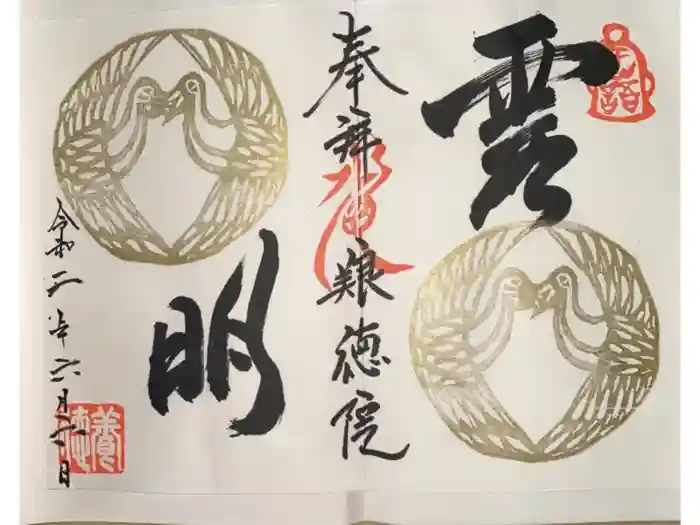 雲
明
奉拝 養徳院
令和二年六月 日
養徳